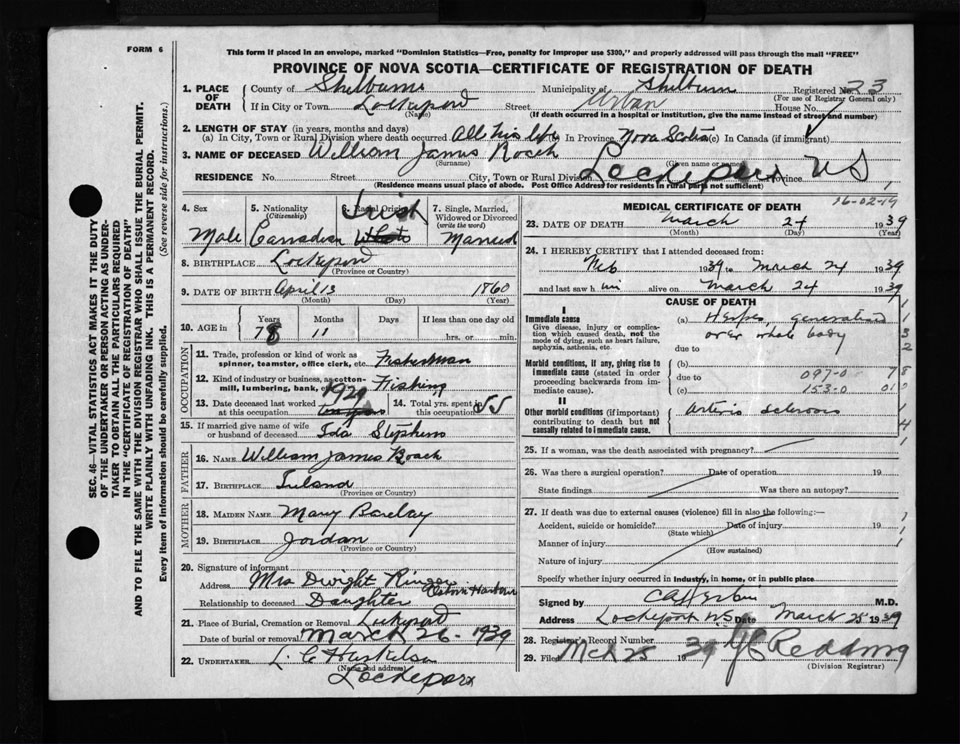 FORM 6
This form if placed in an envelope, marked "Dominion Statistics—Free, penalty for improper use $300," and properly addressed will pass through the mail "FREE"
PROVINCE OF NOVA SCOTIA—CERTIFICATE OF REGISTRATION OF DEATH
SEC. 46—VITAL STATISTICS ACT MAKES IT THE DUTY
OF THE UNDERTAKER OR PERSON ACTING AS UNDER-
TAKER TO OBTAIN ALL THE PARTICULARS REQUIRED
IN THE "CERTIFICATE OF REGISTRATION OF DEATH"
AND TO FILE THE SAME WITH THE DIVISION REGISTRAR WHO SHALL ISSUE THE BURIAL PERMIT.
WRITE PLAINLY WITH UNFADING INK. THIS IS A PERMANENT RECORD.
Every item of information should be carefully supplied. (See reverse side for instructions.)
1. PLACE OF DEATH
County of Shelburne Municipality of Shelburn Registered No. 23
(For use of Registrar General only)
If in City or Town Lockeport (Name) Street Urban House No.
(If death occurred in a hospital or institution, give the name instead of street and number)
2. LENGTH OF STAY (in years, months and days)
(a) In City, Town or Rural Division where death occurred All his life In Province Nova Scotia (c) In Canada (if immigrant)
3. NAME OF DECEASED William James Roach
(Surname) (Given name or names)
RESIDENCE No. Street City, Town or Rural Division Lockeport Province NS
(Residence means usual place of abode. Post Office Address for residents in rural parts not sufficient)
4. Sex Male
5. Nationality (Citizenship) Canadian
6. Racial Origin Irish White
7. Single, Married, Widowed or Divorced (write the word) Married
8. BIRTHPLACE Lockeport
(Province or Country)
9. DATE OF BIRTH April 13 1860
(Month) (Day) (Year)
10. AGE in Years 78 Months 11 Days If less than one day old hrs. or min.
OCCUPATION
11. Trade, profession or kind of work as spinner, teamster, office clerk, etc. Fisherman
12. Kind of industry or business, as cotton-mill, lumbering, bank, Fishing
13. Date deceased last worked at this occupation 1929
14. Total yrs. spent in this occupation 55
15. If married give name of wife or husband of deceased Ida Stephens
FATHER
16. NAME William James Roach
17. BIRTHPLACE Ireland
(Province or Country)
MOTHER
18. MAIDEN NAME Mary Barclay
19. BIRTHPLACE Jordan
(Province or Country)
20. Signature of informant Mrs Dwight Ringer
Address Harbour
Relationship to deceased Daughter
21. Place of Burial, Cremation or Removal Lockeport
Date of burial or removal March 26 - 1939
22. UNDERTAKER L. C.
(Name and address)
Lockeport
MEDICAL CERTIFICATE OF DEATH
16-02-19
23. DATE OF DEATH March 24 1939
(Month) (Day) (Year)
24. I HEREBY CERTIFY that I attended deceased from:
Feb 1939 to March 24 1939
and last saw him alive on March 24 1939
CAUSE OF DEATH
I
Immediate cause
Give disease, injury or complication which caused death, not the mode of dying, such as heart failure, asphyxia, asthenia, etc.
(a) Herpes generalized
over whole body
due to
Morbid conditions, if any, giving rise to immediate cause (stated in order proceeding backwards from immediate cause)
(b) 097-0
due to
(c) 153-0
II
Other morbid conditions (if important) contributing to death but not causally related to immediate cause.
Arterio sclerosis
25. If a woman, was the death associated with pregnancy?
26. Was there a surgical operation? Date of operation 19
State findings Was there an autopsy?
27. If death was due to external causes (violence) fill in also the following:—
Accident, suicide or homicide? Date of injury 19
(State which)
Manner of injury
(How sustained)
Nature of injury
Specify whether injury occurred in industry, in home, or in public place
Signed by M.D.
Address Lockeport NS Date March 25 1939
28. Registrar's Record Number
29. Filed Mch 25 1939 Redding
(Division Registrar)